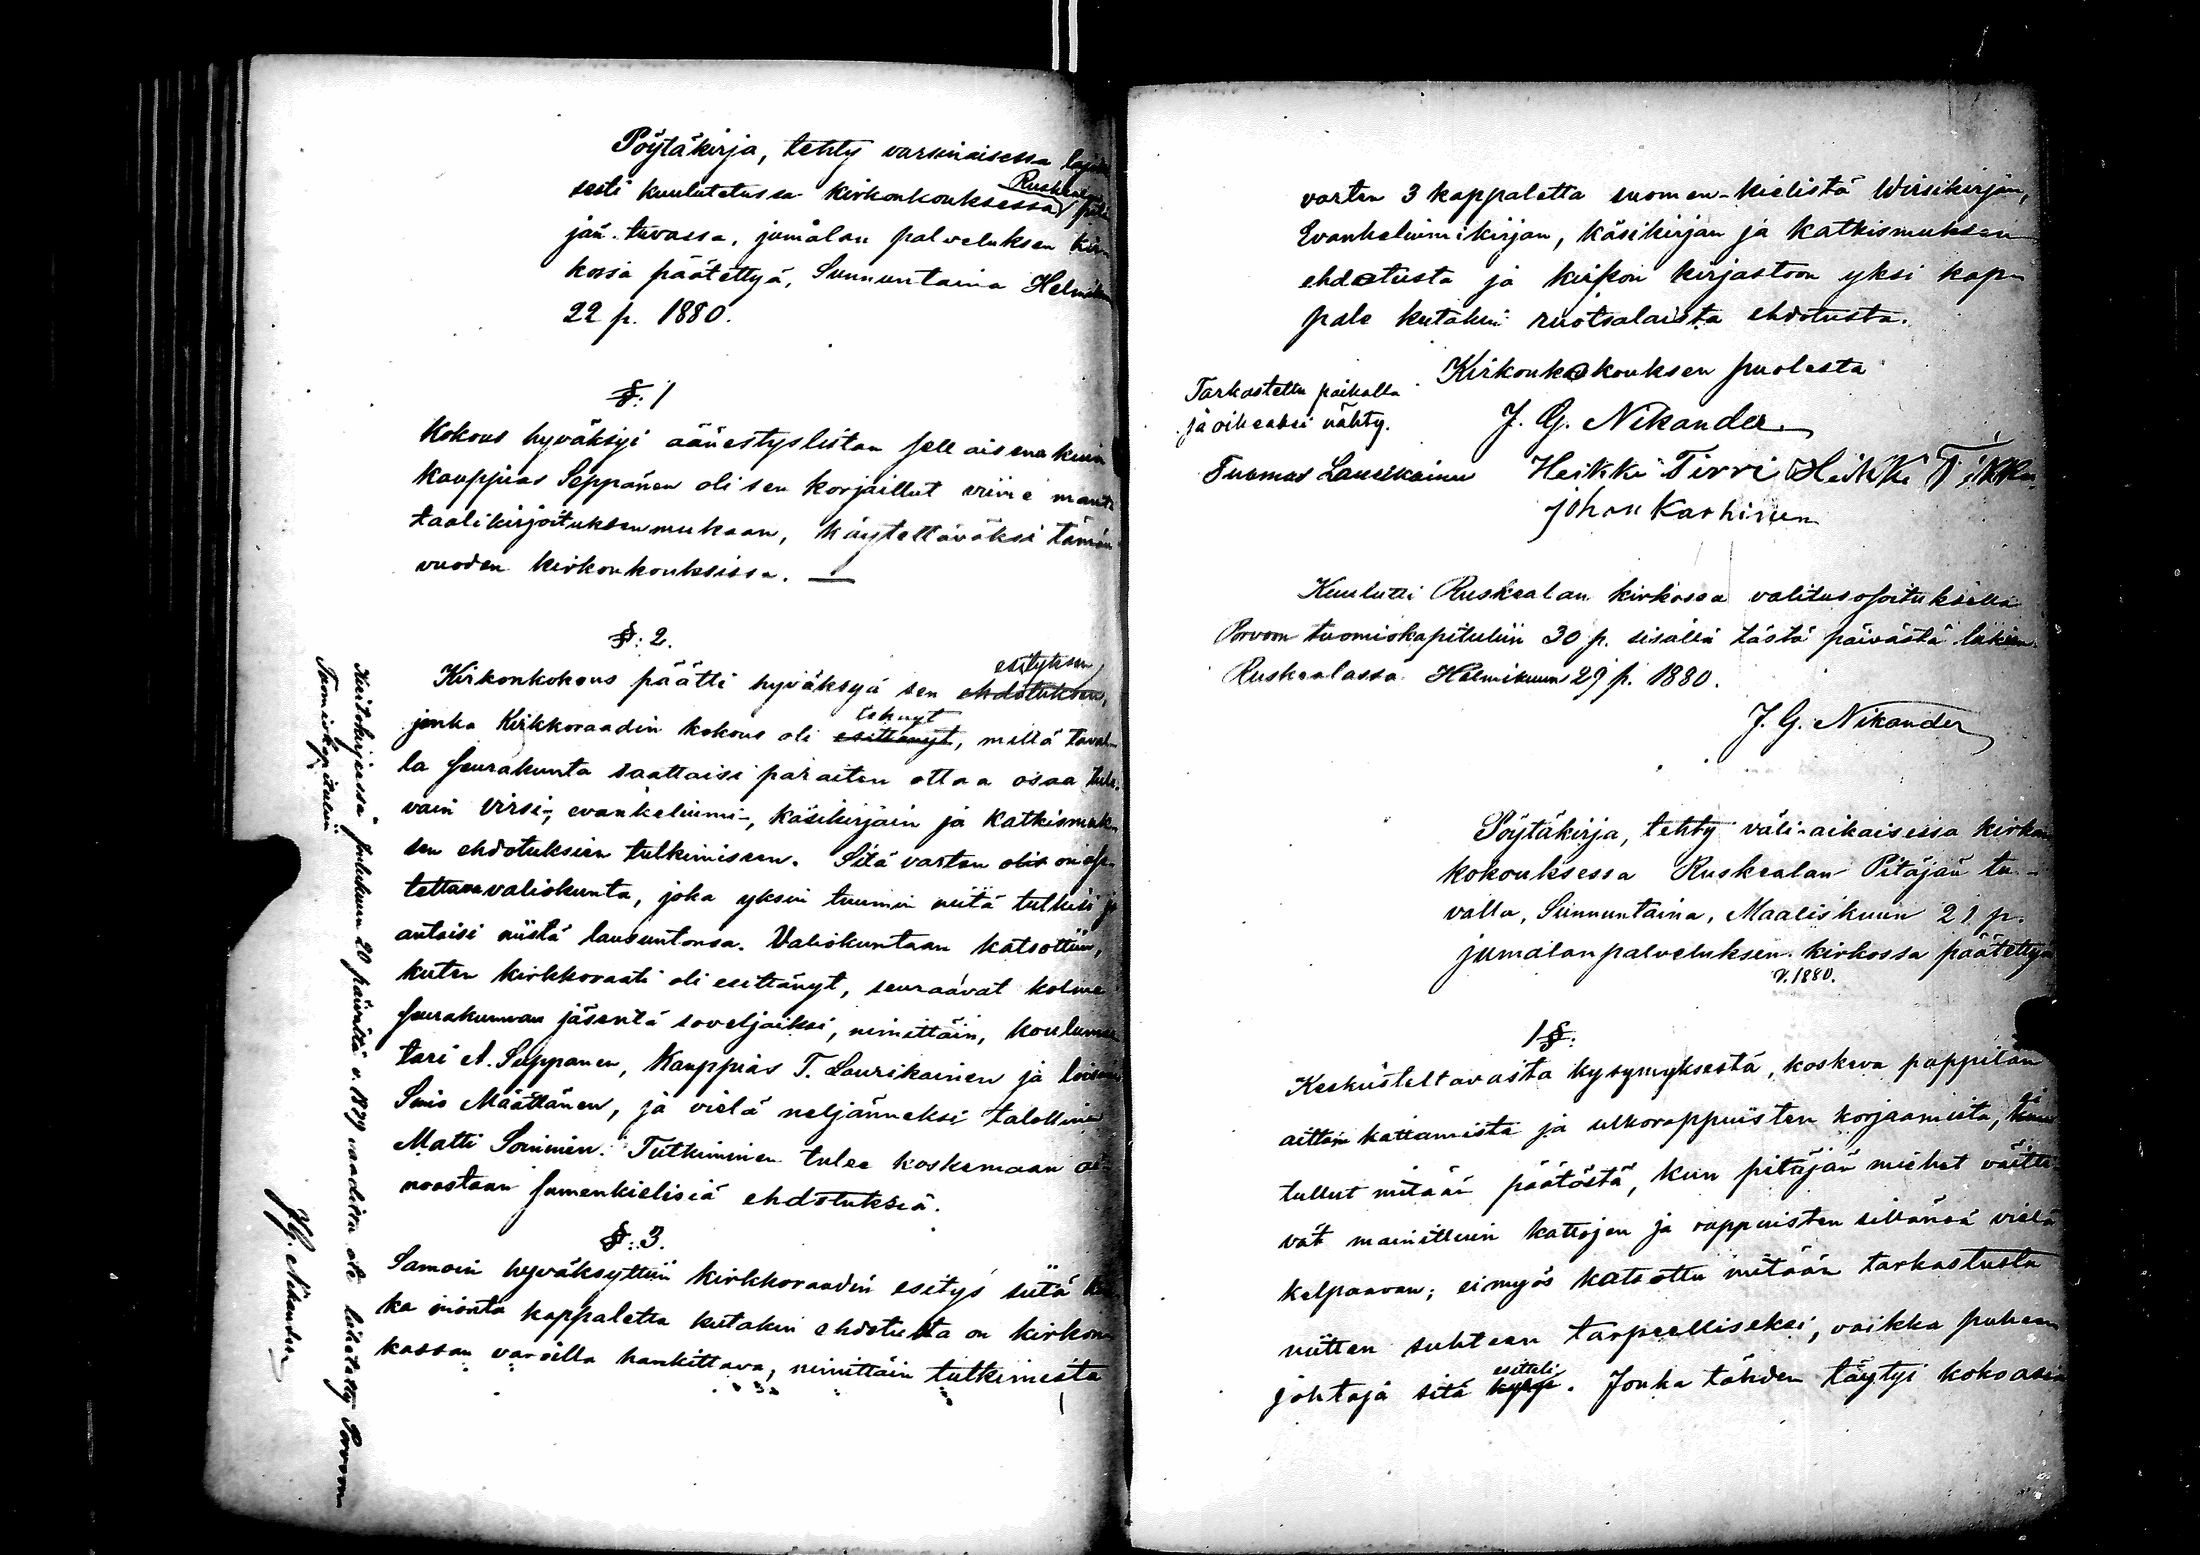 Pöytäkirja, tehty varsinaisessa
sesti kuulutetussa kirkonkouksessa
jän-tuvassa, jumalan palveluksen kir-
kossa päätettyä, Sunnuntaina Helmikuun
22 p. 1880.
§: 1
Kokous hyväksyi äänestyslistan sell aisena kuin
kauppias Seppänen oli sen korjaillut viime mant-
taalikirjoituksen mukaan, käytettäväksi tämän
vuoden kirkonkouksissa. —
§: 2.
esityksen
Kirkonkokous päätti hyväksyä sen ehdotuksen,
tehnyt
jonka Kirkkoraadin kokous oli esittänyt, millä taval-
la seurakunta saattaisi paraiten ottaa osaa tule-
vain virsi-, evankeliumi-, käsikirjain ja katkismuk-
sen ehdotuksien tutkimiseen. Sitä varten on ase-
tettava valiokunta, joka yksin tuumin niitä tutkisi ja
antaisi niistä lausuntonsa. Valiokuntaan katsottiin,
kuten kirkkoraati oli esittänyt, seuraavat kolme
seurakunnan jäsentä soveljaiksi, nimittäin, koulumes
tari A. Seppänen, Kauppias T. Laurikainen ja
Simo Määttänen, ja vielä neljänneksi talollinen
Matti Soininen. Tutkiminen tulee koskemaan ai-
noastaan suomenkielisiä ehdotuksia.
§: 3.
Samoin hyväksyttiin kirkkoraadin esitys siitä kuin-
ka monta kappaletta kutakin ehdotusta on kirkon
kassan varoilla hankittava, nimittäin tutkimista
Kiertokirjeessä Joulukuun 20 päivältä v. 1879 vaadittu ote lähetetty Porvoon
Tuomiokapituliin
J. G. Nikander
varten 3 kappaletta suomen-kielistä Wirsikirjan,
Evankeliumikirjan, käsikirjan ja katkismuksen
ehdotusta ja kirkon kirjastoon yksi kap-
pale kutakin ruotsalaista ehdotusta.
Kirkonkokouksen puolesta
Tarkastettu paikalla
ja oikeaksi nähty.
J. G. Nikander
Tuomas Laurikainen Heikki Tirri Heikki Tikka
Johan Karhinen
Kuulutti Ruskealan kirkossa valitusosoituksella
Porvoon tuomiokapituliin 30 p. sisällä tästä päivästä lukien
Ruskealassa Helmikuun 29 p. 1880.
J. G. Nikander
Pöytäkirja, tehty väli-aikaisessa kirkon
kokouksessa Ruskealan Pitäjän tu-
valla, Sunnuntaina, Maaliskuun 21 p.
jumalanpalveluksen kirkossa päätettyä
v. 1880.
1 §:
Keskusteltavasta kysymyksestä, koskeva pappilan
aittain kattamista ja ulkorappuisten korjaamista, ei
tullut mitään päätöstä, kun pitäjän miehet väitti-
vät mainittuin kattojen ja rappuisten sillänsä vielä
kelpaavan; ei myös katsottu mitään tarkastusta
niitten suhteen tarpeelliseksi, vaikka puheen
esitteli
johtaja sitä kysyi. Jonka tähden täytyi koko asia